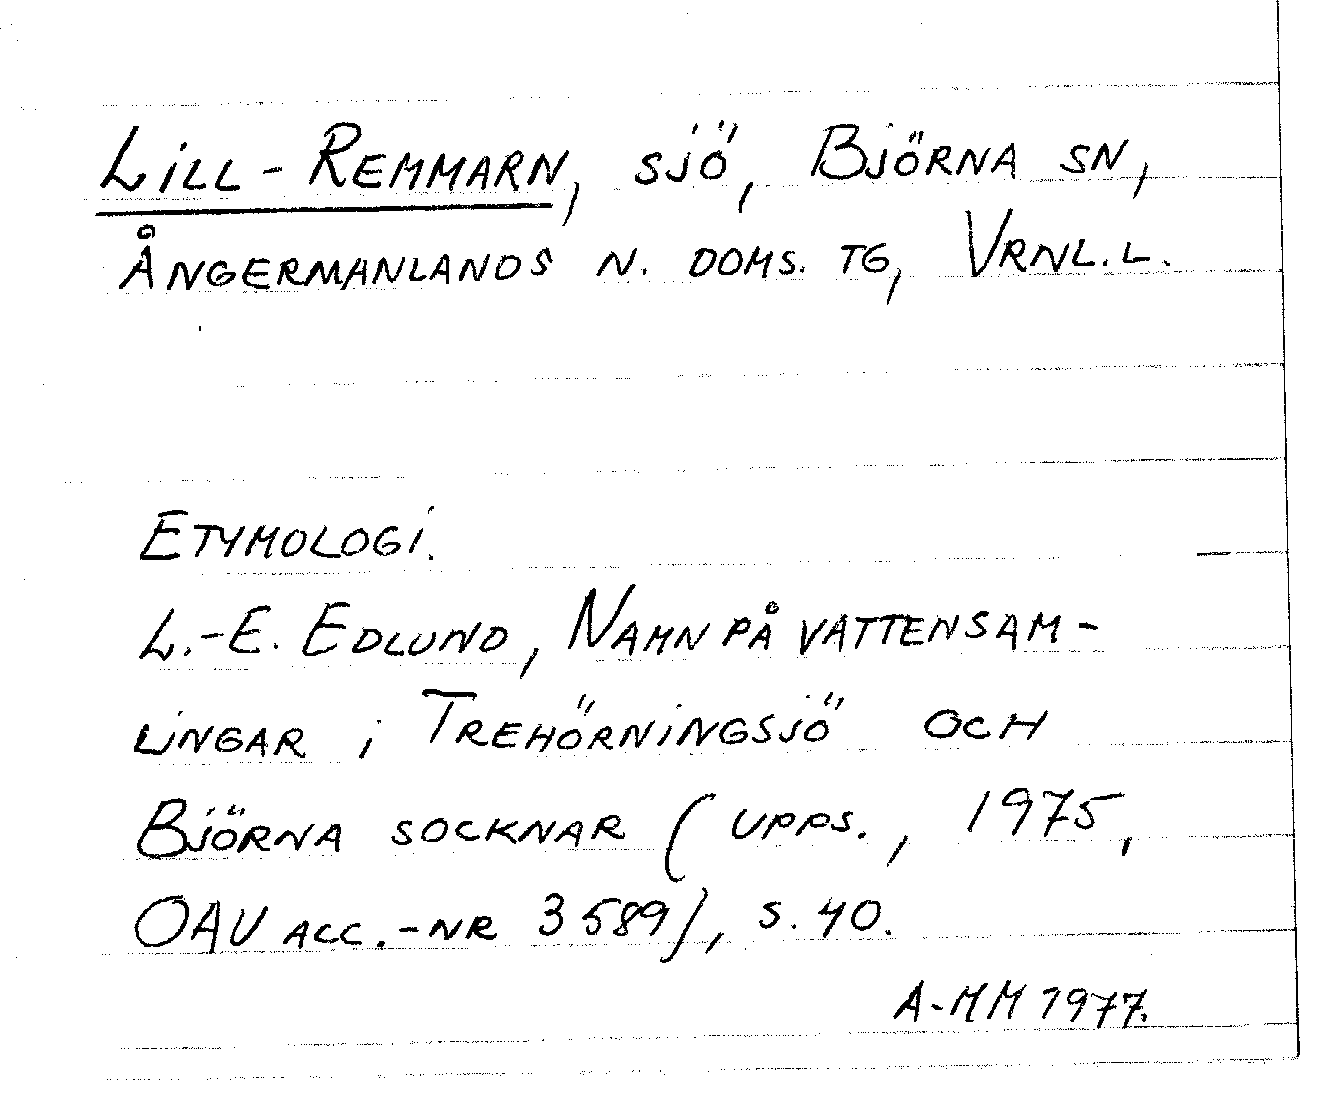 Lill-Remmarn, sjö, Björna sn,
Ångermanlands n. doms. tg, Vrnl. l.
Etymologi.
L.-E. Edlund, Namn på vattensam-
lingar i Trehörningsjö och
Björna socknar (Upps., 1975,
OAU acc.-nr 3589), s. 40.
A-MM 1977.